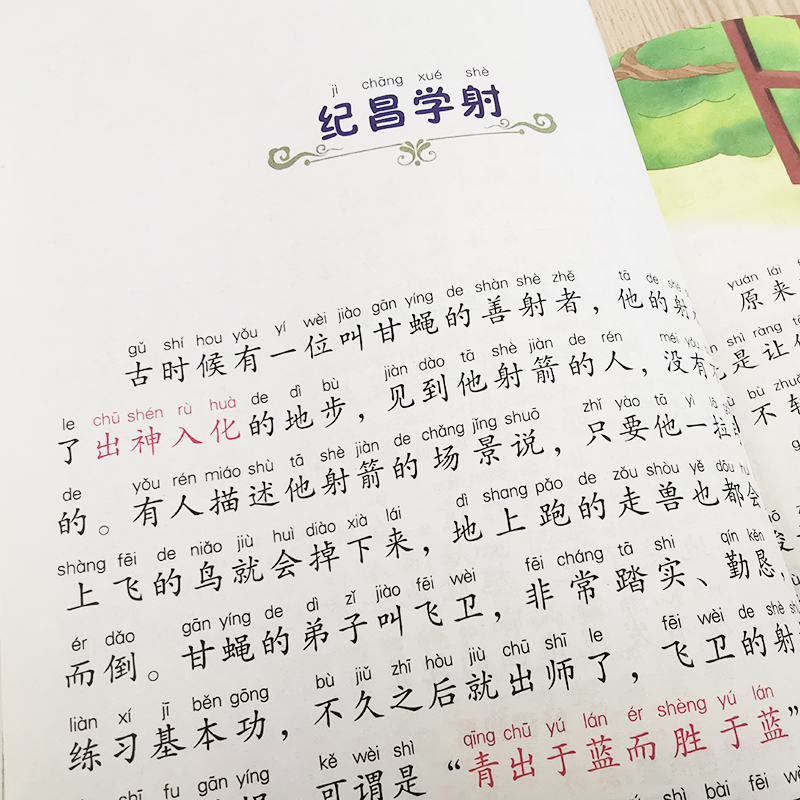 jì chāng xué shè
纪昌学射
gǔ shí hou yǒu yí wèi jiào gān yíng de shàn shè zhě tā de shè
古时候有一位叫甘蝇的善射者，他的射
le chū shén rù huà de dì bù jiàn dào tā shè jiàn de rén méi yǒu
了出神入化的地步，见到他射箭的人，没有
de yǒu rén miáo shù tā shè jiàn de chǎng jǐng shuō zhǐ yào tā yì lā
的。有人描述他射箭的场景说，只要他一拉
shàng fēi de niǎo jiù huì diào xià lái dì shang pǎo de zǒu shòu yě dōu hu
上飞的鸟就会掉下来，地上跑的走兽也都会
ér dǎo gān yíng de dì zǐ jiào fēi wèi fēi cháng tā shi qín kěn
而倒。甘蝇的弟子叫飞卫，非常踏实、勤恳，
liàn xí jī běn gōng bù jiǔ zhī hòu jiù chū shī le fēi wèi de shè
练习基本功，不久之后就出师了，飞卫的射
shī fu gān yíng kě wèi shì qīng chū yú lán ér shèng yú lán
可谓是“青出于蓝而胜于蓝”
shì bài fēi
yuán lái
原来
shì ràng
是让
bù
不